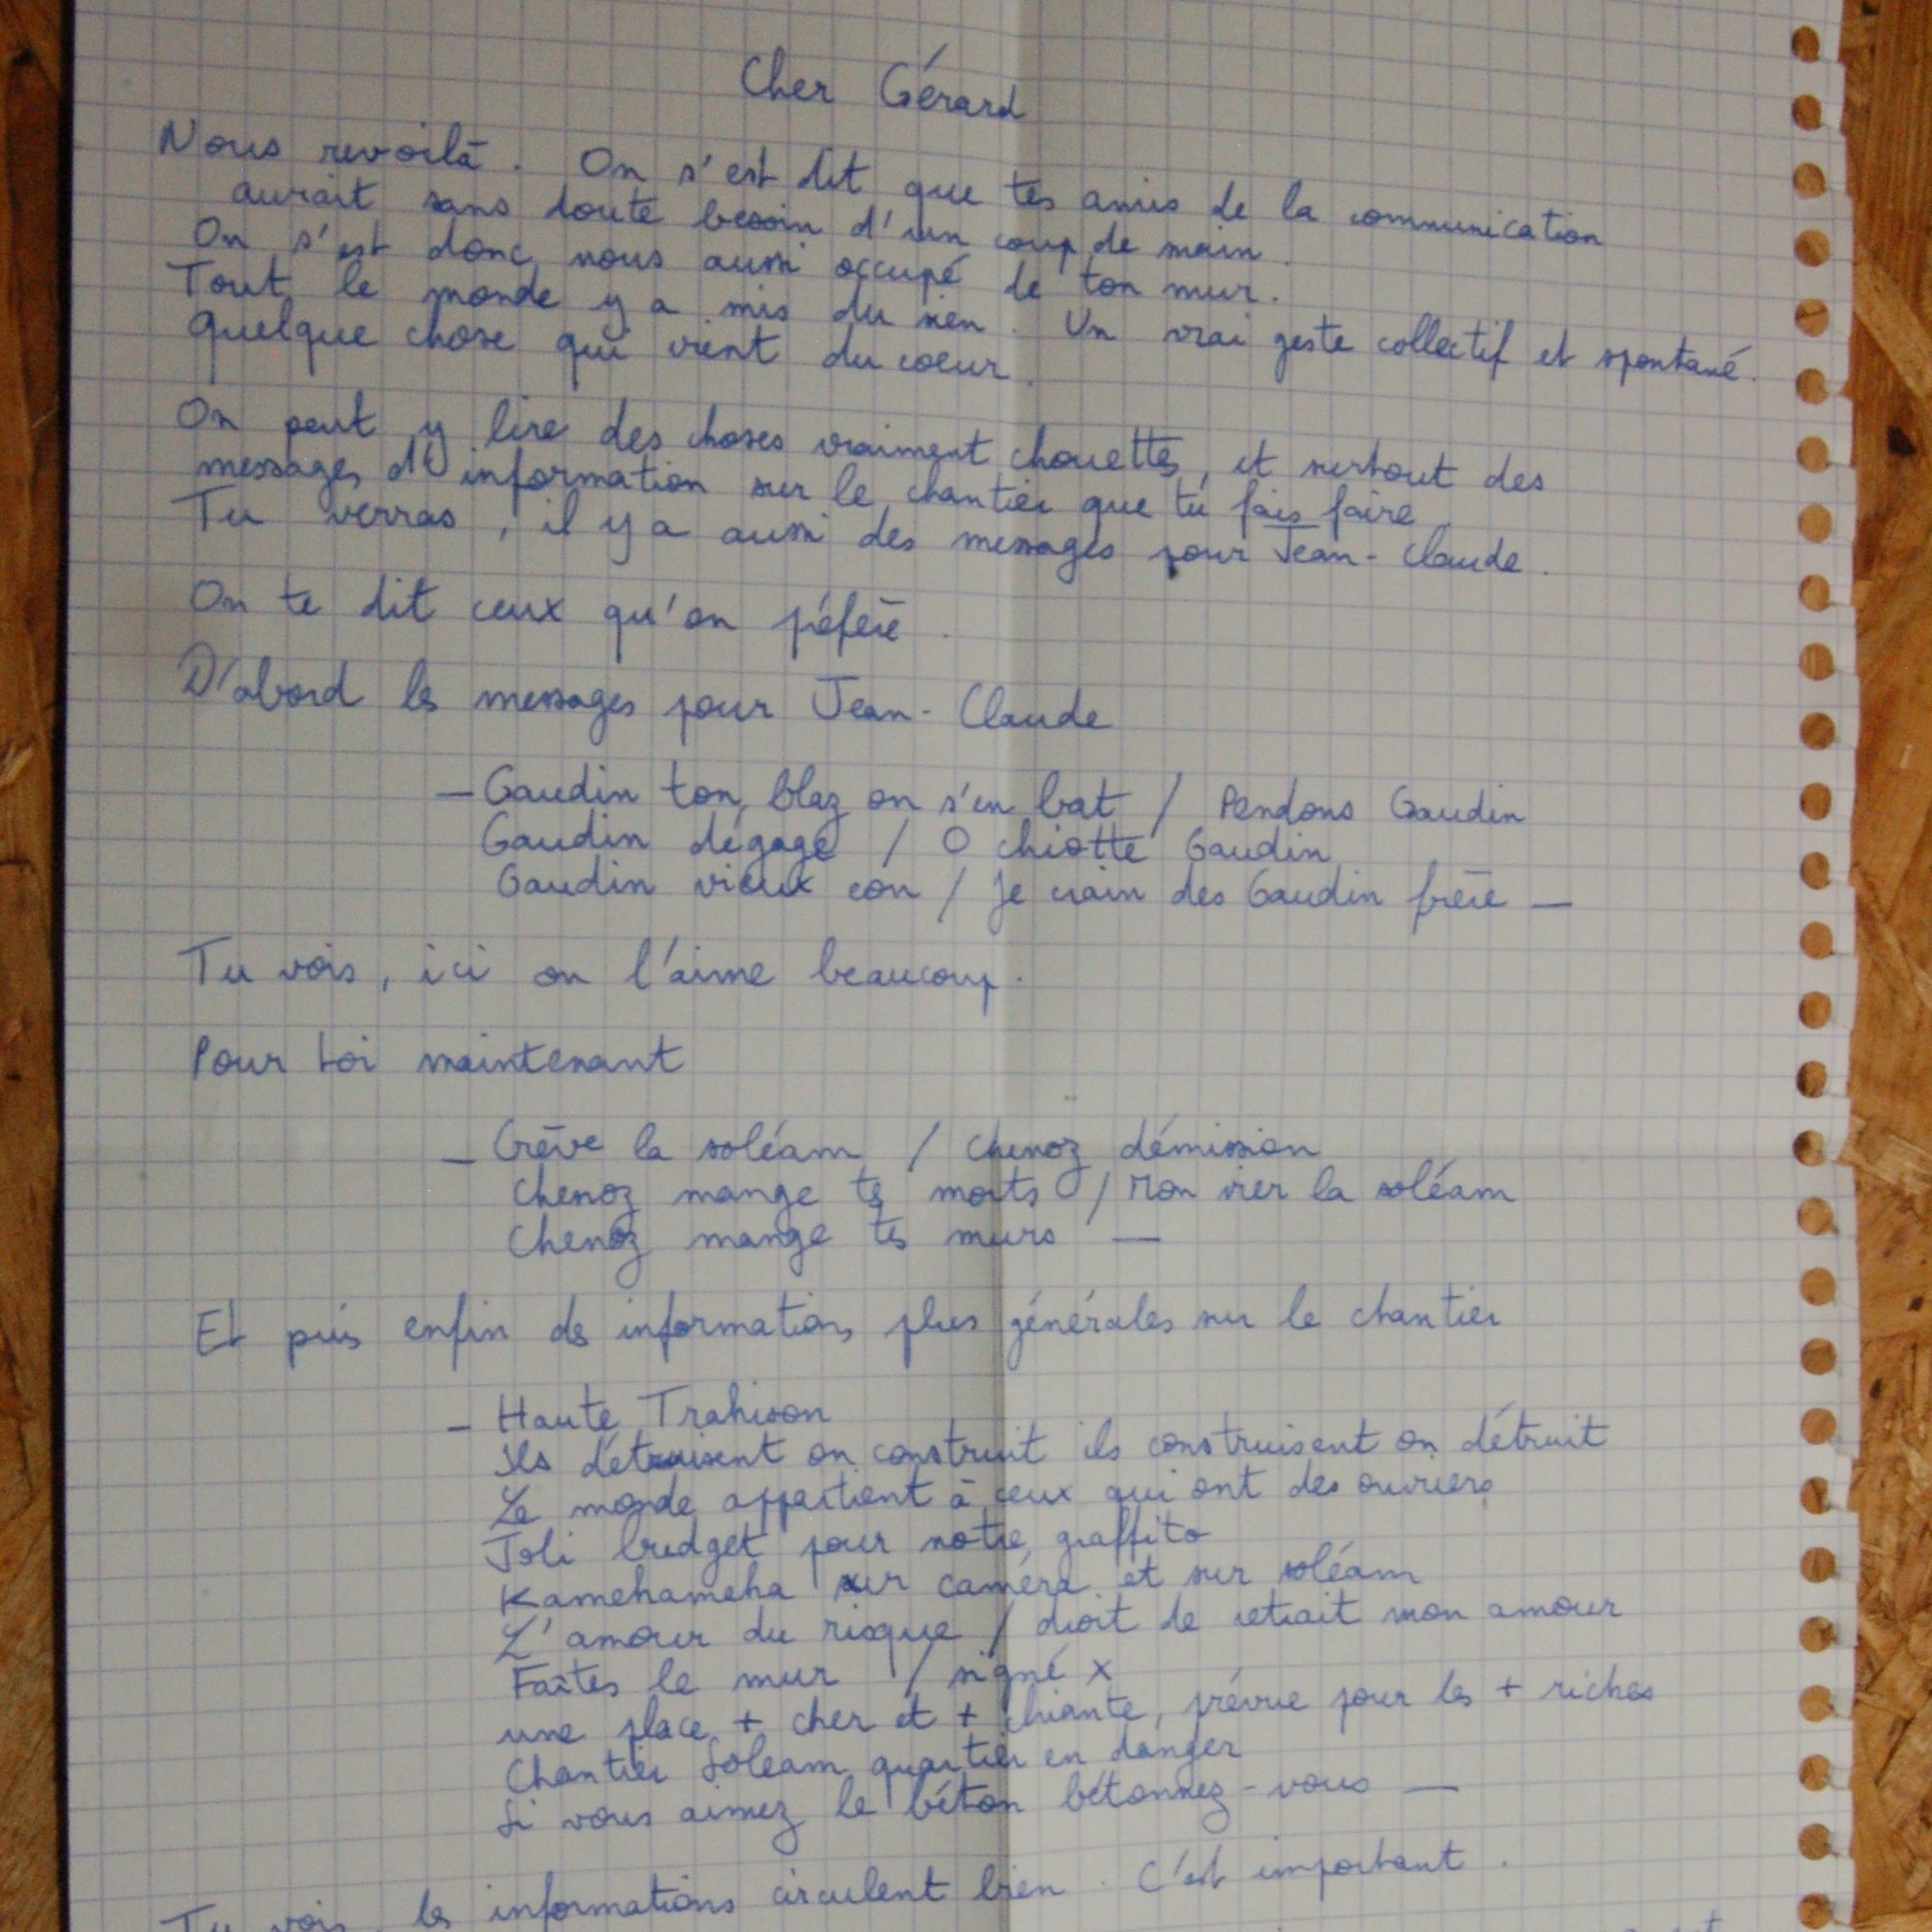 Cher Gérard
Nous revoilà. On s'est dit que tes amis de la communication
aurait sans doute besoin d'un coup de main.
On s'est donc nous aussi occupé de ton mur.
Tout le monde y a mis du sien. Un vrai geste collectif et spontané.
Quelque chose qui vient du coeur.
On peut y lire des choses vraiment chouettes, et surtout des
messages d'information sur le chantier que tu fais faire
Tu verras, il y a aussi des messages pour Jean-Claude.
On te dit ceux qu'on péfère.
D'abord les messages pour Jean-Claude
— Gaudin ton blaz on s'en bat / Pendons Gaudin
Gaudin dégage / O chiotte Gaudin
Gaudin vieux con / Je crain des Gaudin frère —
Tu vois, ici on l'aime beaucoup.
Pour toi maintenant
— Crève la soléam / Chenoz démission
Chenoz mange tes morts / Mon vier la soléam
Chenoz mange tes murs —
Et puis enfin des informations plus générales sur le chantier
— Haute Trahison
Ils détruisent on construit ils construisent on détruit
Le monde appartient à ceux qui ont des ouvriers
Joli budget pour notre graffito
Kamehameha sur caméra et sur soléam
L'amour du risque / droit de retrait mon amour
Faites le mur / signé X
une place + cher et + chiante, prévue pour les + riches
Chantier Soleam quartier en danger
Si vous aimez le béton bétonnez-vous —
Tu vois, les informations circulent bien. C'est important.